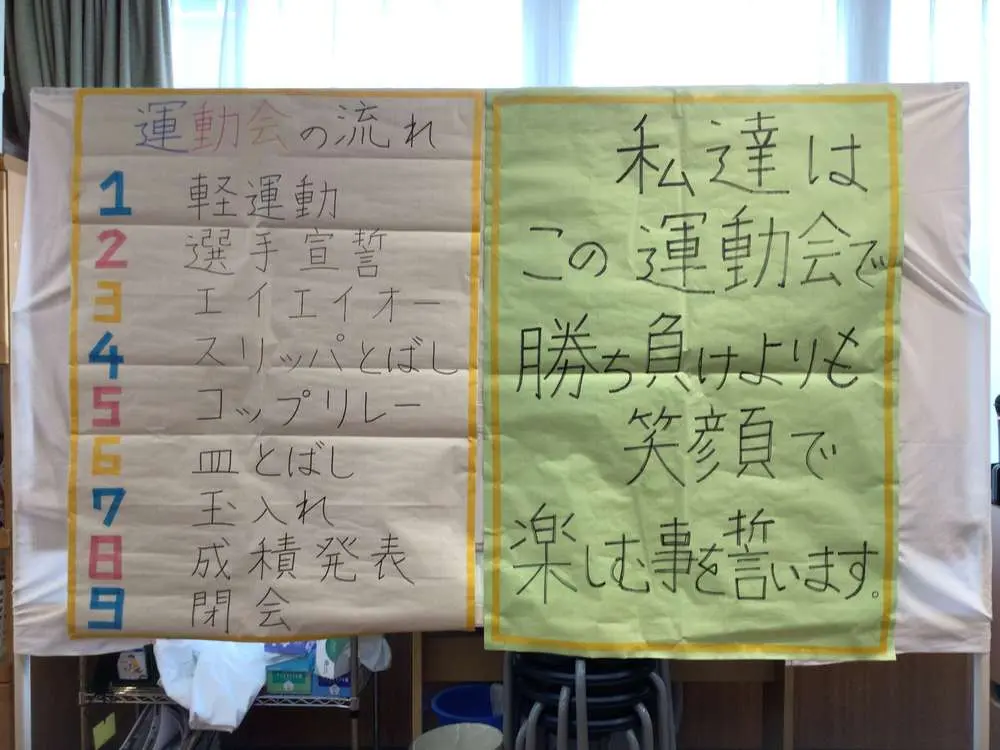 運動会の流れ
1 軽運動
2 選手宣誓
3 エイエイオー
4 スリッパとばし
5 コップリレー
6 皿とばし
7 玉入れ
8 成積発表
9 閉会
私達は
この運動会で
勝ち負けよりも
笑顔で
楽しむ事を誓います。